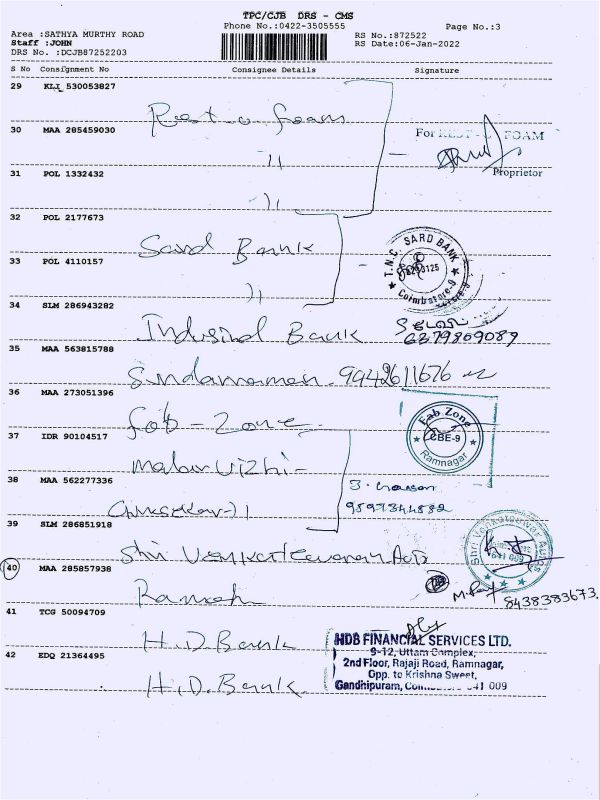 TPC/CJB DRS - CMS
Phone No.:0422-3505555
Page No.:3
Area :SATHYA MURTHY ROAD
RS No.:872522
Staff :JOHN
RS Date:06-Jan-2022
DRS No. :DCJB87252203
S No Consignment No Consignee Details Signature
29 KLI 530053827
Rest o foam
30 MAA 285459030
For REST FOAM
))
31 POL 1332432
Proprietor
))
32 POL 2177673
Sard Bank
T.N.C. SARD BANK
33 POL 4110157
Coimbatore-9
))
34 SLM 286943282
Indusind Bank
6379869089
35 MAA 563815788
9942611676
36 MAA 273051396
Fab - Zone
Fab Zone
CBE-9
Ramnagar
37 IDR 90104517
malar vizhi
38 MAA 562277336
9597344882
39 SLM 286851918
Shri
40 MAA 285857938
Ramesh
8438383673
41 TCG 50094709
H.D. Bank
HDB FINANCIAL SERVICES LTD.
9-12, Uttam Complex,
42 EDQ 21364495
2nd Floor, Rajaji Road, Ramnagar,
Opp. to Krishna Sweet,
H.D. Bank
Gandhipuram, 641 009